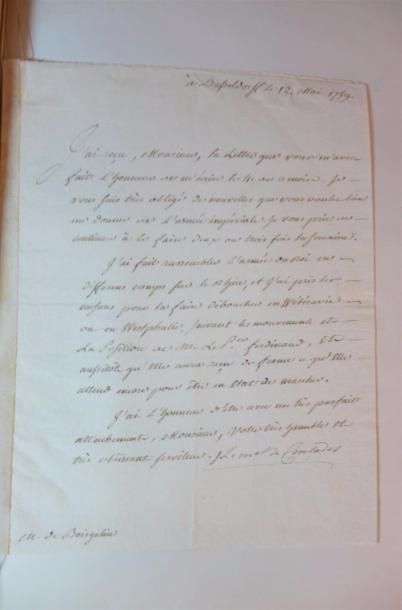 à Dusseldorff le 12. Mai 1759.
J'ai reçu, Monsieur, la Lettre que vous m'avez
fait L'honneur de m'écrire le 4. de ce mois. Je
vous suis très obligé des nouvelles que vous voulez bien
me donner de L'armée impériale. Je vous prie de
continuer à le faire deux ou trois fois la semaine.
J'ai fait rassembler L'armée du Roi en
differens camps sur le Rhin, et J'ai pris des
pour la faire déboucher en Wétéravie
ou en Westphalie, suivant les mouvemens et
La Position de M. Le P.ce ferdinand, et
aussitôt qu'Elle aura reçu de france ce qu'Elle
attend encore pour être en état de marcher.
J'ai L'honneur d'être avec un très parfait
attachement, Monsieur, Votre très humble et
très obéissant serviteur. Le mal de Contades
M. de Boisgelin